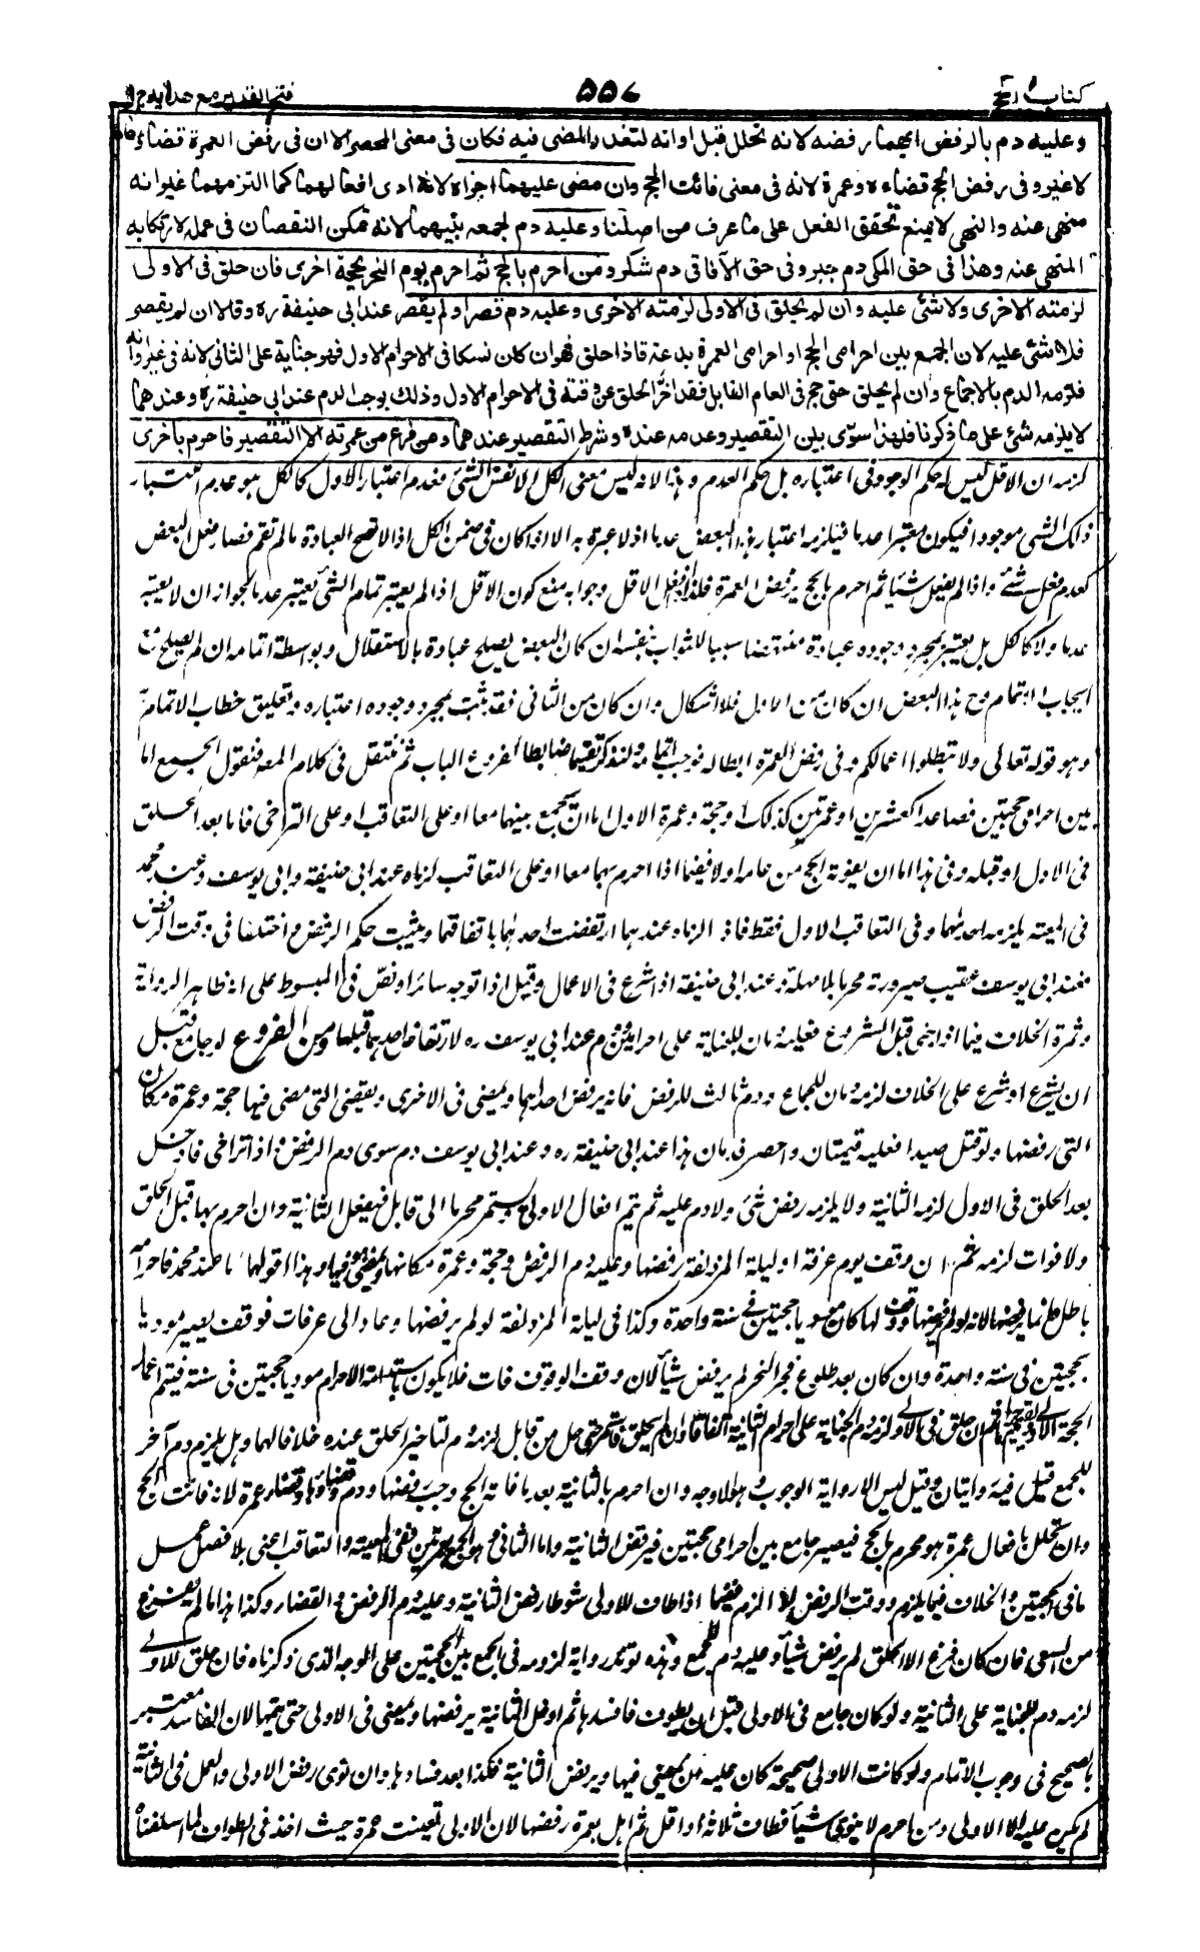 كتاب الحج
٥٥٧
فتح القدير مع هدايه ج ١
وعليه دم بالرفض ايهما رفضه لانه تحلل قبل اوانه لتعذر المضى فيه فكان فى معنى المحصر الا ان فى رفض العمرة قضاءها
لا غير وفى رفض الحج قضاءه وعمرة لانه فى معنى فائت الحج وان مضى عليهما اجزاه لانه ادى افعالهما كما التزمهما غير انه
منهى عنه والنهى لا يمنع تحقق الفعل على ما عرف من اصلنا وعليه دم لجمعه بينهما لانه تمكن النقصان فى عمله لارتكابه
المنهى عنه وهذا فى حق المكى دم جبر وفى حق الآفاقى دم شكر ومن احرم بالحج ثم احرم يوم النحر بحجة اخرى فان حلق فى الاولى
لزمته الاخرى ولا شئ عليه وان لم يحلق فى الاولى لزمته الاخرى وعليه دم قصر او لم يقصر عند ابى حنيفة ره وقالا ان لم يقصر
فلا شئ عليه لان الجمع بين احرامى الحج او احرامى العمرة بدعة فاذا حلق فهو ان كان نسكا فى الاحرام الاول فهو جناية على الثانى لانه فى غير اوانه
فلزمه الدم بالاجماع وان لم يحلق حتى حج فى العام القابل فقد اخر الحلق عن وقته فى الاحرام الاول وذلك يوجب الدم عند ابى حنيفة ره وعندهما
لا يلزمه شئ على ما ذكرنا فلهذا سوّى بين التقصير وعدمه عنده وشرط التقصير عندهما ومن فرغ من عمرته الا التقصير فاحرم باخرى
لزمه ان الاقل ليس له حكم الوجود فى اعتباره بل حكم العدم وهذا لانه ليس معنى الكل الا نفس الشئ فعدم اعتبار الاول كالكل هو عدم اعتبار
ذلك الشى موجودا فيكون معتبرا عدما فيلزم اعتبار هذا البعض عدما اذ لا عبرة به الا اذا كان فى ضمن الكل اذ لا تصح العبادة ما لم تتم فصار فعل البعض
كعدم فعل شئ واذا لم يفعل شيئا ثم احرم بالحج يرفض العمرة فكذا اذا فعل الاقل وجوابه منع كون الاقل اذا لم يعتبر تمام الشئ يعتبر عدما لجواز ان لا يعتبر
عدما ولا كالكل بل يعتبر بمجرد وجوده عبادة منتهضا سببا للثواب بنفسه ان كان البعض يصلح عبادة بالاستقلال وبواسطة اتمامه ان لم يصلح مع
ايجاب الاتمام وح هذا البعض ان كان من الاول فلا اشكال وان كان من الثانى فقد ثبت بمجرد وجوده اعتباره وتعليق خطاب الاتمام به
وهو قوله تعالى ولا تبطلوا اعمالكم وفى رفض العمرة ابطاله فوجب اتمامه ولنذكر تقسيما ضابطا لفروع الباب ثم ننتقل فى كلام المصه فنقول الجمع اما
بين احرامى حجتين فصاعدا كعشرين او عمرتين كذلك او حجة وعمرة الاول اما ان يجمع بينهما معا او على التعاقب او على التراخى فاما بعد الحلق
فى الاول او قبله وفى هذا اما ان يفوته الحج من عامه او لا ففيما اذا احرم بهما معا او على التعاقب لزماه عند ابى حنيفة وابى يوسف وعند محمد
فى المعية يلزمه احدهما وفى التعاقب الاول فقط فاذا لزماه عندهما ارتفضت احدهما باتفاقهما ويثبت حكم الرفض واختلفا فى وقت الرفض
فعند ابى يوسف عقيب صيرورته محرما بلا مهلة وعند ابى حنيفة اذا شرع فى الاعمال وقيل اذا توجه سائرا ونص فى المبسوط على انه ظاهر الرواية
وثمرة الخلاف فيما اذا جنى قبل الشروع فعليه دمان للجناية على احرامين ودم عند ابى يوسف ره لارتفاض احدهما قبلها ومن الفروع لو جامع قبل
ان يشرع او شرع على الخلاف لزمه دمان للجماع ودم ثالث للرفض فانه يرفض احداهما ويمضى فى الاخرى ويقضى التى مضى فيها حجة وعمرة مكان
التى رفضها ولو قتل صيدا فعليه قيمتان واحصر فدمان هذا عند ابى حنيفة ره وعند ابى يوسف دم سوى دم الرفض واذا تراخى فادخل
بعد الحلق فى الاول لزمه الثانية ولا يلزمه رفض شئ ولا دم عليه ثم يتم افعال الاولى ويستمر محرما الى قابل فيفعل الثانية وان احرم بها قبل الحلق
ولا فوات لزمه ثم ان وقف يوم عرفة او ليلة المزدلفة رفضها وعليه دم الرفض وحجة وعمرة مكانها ويمضى فيما هو فيها وهذا قولهما اما عند محمد فاحرامه
باطل وانما يرفضها لانه لو لم يرفضها ووقف لها كان مؤديا حجتين فى سنة واحدة وكذا فى ليلة المزدلفة لو لم يرفضها وعاد الى عرفات فوقف يصير مؤديا
بحجتين فى سنة واحدة وان كان بعد طلوع فجر النحر لم يرفض شيأ لان وقت الوقوف فات فلا يكون باستدامة الاحرام مؤديا حجتين فى سنة فيتم اعمال
الحجة الاولى ويقيم حراما ثم ان حلق فى الاولى لزمه دم الجناية على احرام الثانية اتفاقا وان لم يحلق فاستمر حتى حل من قابل لزمه دم لتاخير الحلق عنده خلافا لهما وهل يلزم دم آخر
للجمع قيل فيه روايتان وقيل ليس الا رواية الوجوب وهو الاوجه وان احرم بالثانية بعد ما فاته الحج وجب رفضها ودم وقضاؤها وقضاء عمرة لانه فائت الحج
وان تحلل بافعال عمرة هو محرم بالحج فيصير جامع بين احرامى حجتين فيرفض الثانية واما الثانى فهو الجمع بعمرتين ففى المعية والتعاقب اعنى بلا فصل عمل
ما فى الحجتين والخلاف فيما يلزم ووقت الرفض اذا لزم ففيما اذا طاف للاولى شوطا رفض الثانية وعليه دم الرفض والقضاء وكذا هذا ما لم يفرغ
من السعى فان كان فرغ الا الحلق لم يرفض شيأ وعليه دم للجمع وهذه تؤيد رواية لزومه فى الجمع بين الحجتين على الوجه الذى ذكرناه فان حلق للاولى
لزمه دم للجناية على الثانية ولو كان جامع فى الاولى قبل ان يطوف فافسدها ثم ادخل الثانية يرفضها ويمضى فى الاولى حتى يتمها لان الفاسد معتبر
بالصحيح فى وجوب الاتمام ولو كانت الاولى صحيحة كان عليه ان يمضى فيها ويرفض الثانية فكذا بعد فسادها وان نوى رفض الاولى والعمل فى الثانية
لم يكن عليه الا الاولى ومن احرم لا ينوى شيأ فطاف ثلاثة او اقل ثم اهل بعمرة رفضها لان الاولى تعينت عمرة حيث اخذ فى الطواف لما اسلفناه